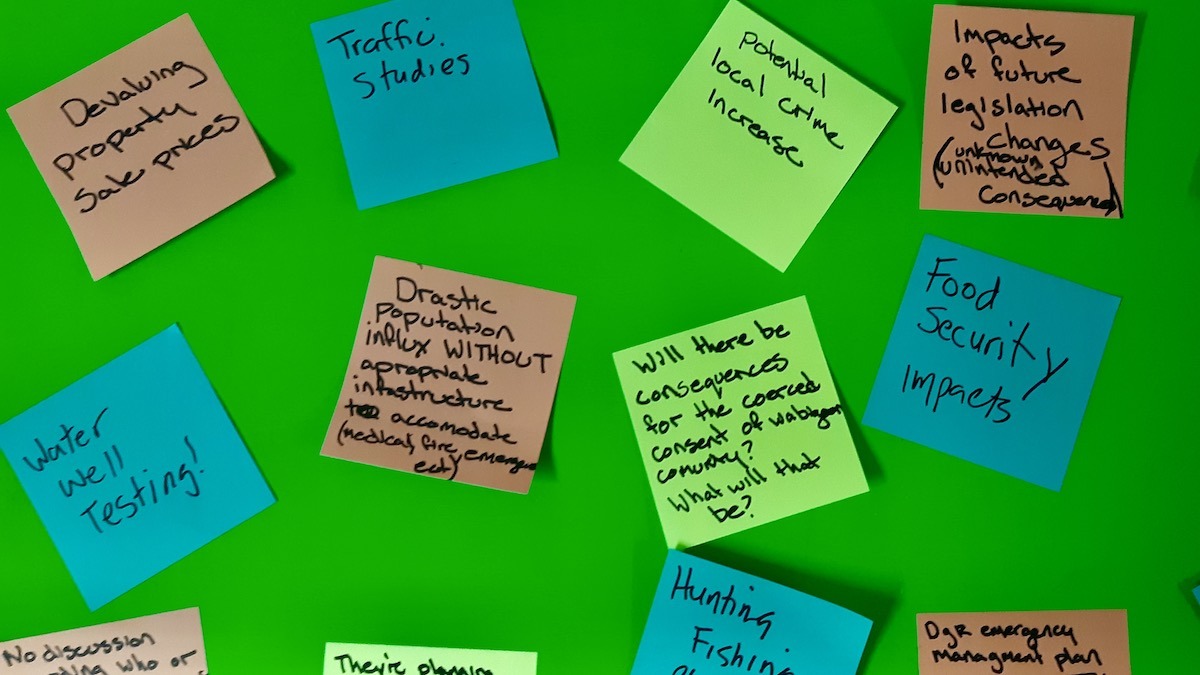 Devaluing
property
Sale prices
Traffic.
Studies
potential
local crime
Increase
Impacts
of future
legislation
changes
(unknown
unintended
Consequences)
Water
Well
Testing!
Drastic
population
influx WITHOUT
apropriate
infrastructure
to accomodate
(medical, fire, emergency
ect)
Will there be
consequences
for the coerced
consent of wabigoon
comunity?
What will that
be?
Food
Security
Impacts
No discussion
who or
They're planning
Hunting
Fishing
DgR emergency
managment plan